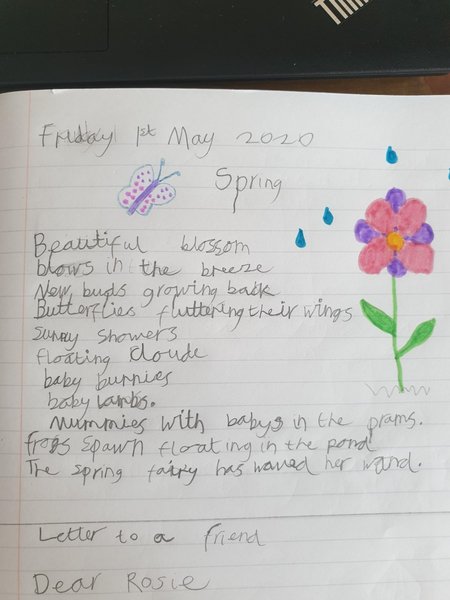 Thin
Friday 1st May 2020
Spring
Beautiful blossom
blows in the breeze
New buds growing back
Butterflies fluttering their wings
sunny showers
floating cloude
baby bunnies
baby lambs.
Mummies with babys in the prams.
frogs spawn floating in the pond
The spring fairy has waved her wand.
Letter to a friend
Dear Rosie